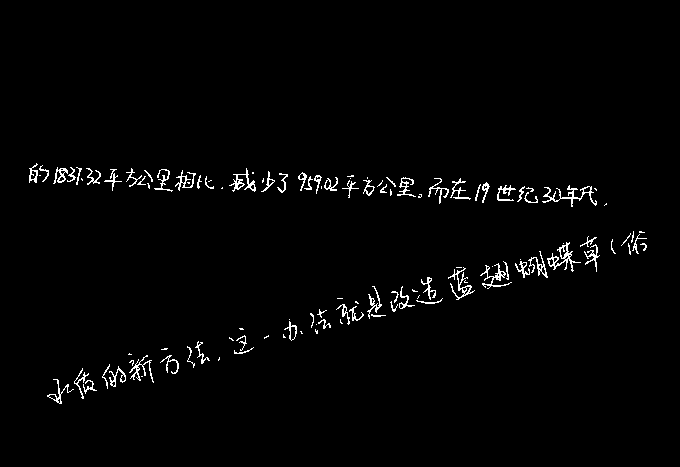 的1837.32平方公里相比,减少了959.02平方公里。而在19世纪30年代,
水质的新方法,这一办法就是改造蓝翅蝴蝶草(俗